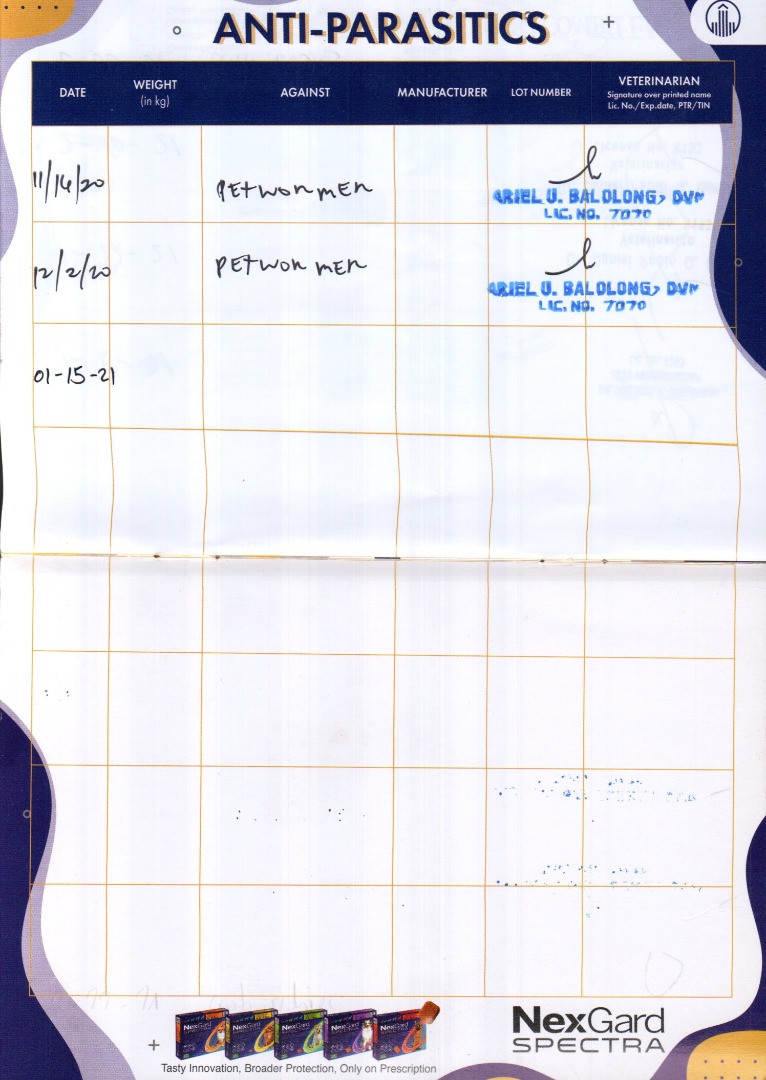 ANTI-PARASITICS
DATE WEIGHT (in kg) AGAINST MANUFACTURER LOT NUMBER VETERINARIAN
Signature over printed name
Lic. No./Exp.date, PTR/TIN
11/16/20 PETWORMER
ARIEL U. BALOLONG, DVM
LIC. NO. 7070
12/2/20 PETWORMER
ARIEL U. BALOLONG, DVM
LIC. NO. 7070
01-15-21
NexGard
SPECTRA
Tasty Innovation, Broader Protection, Only on Prescription